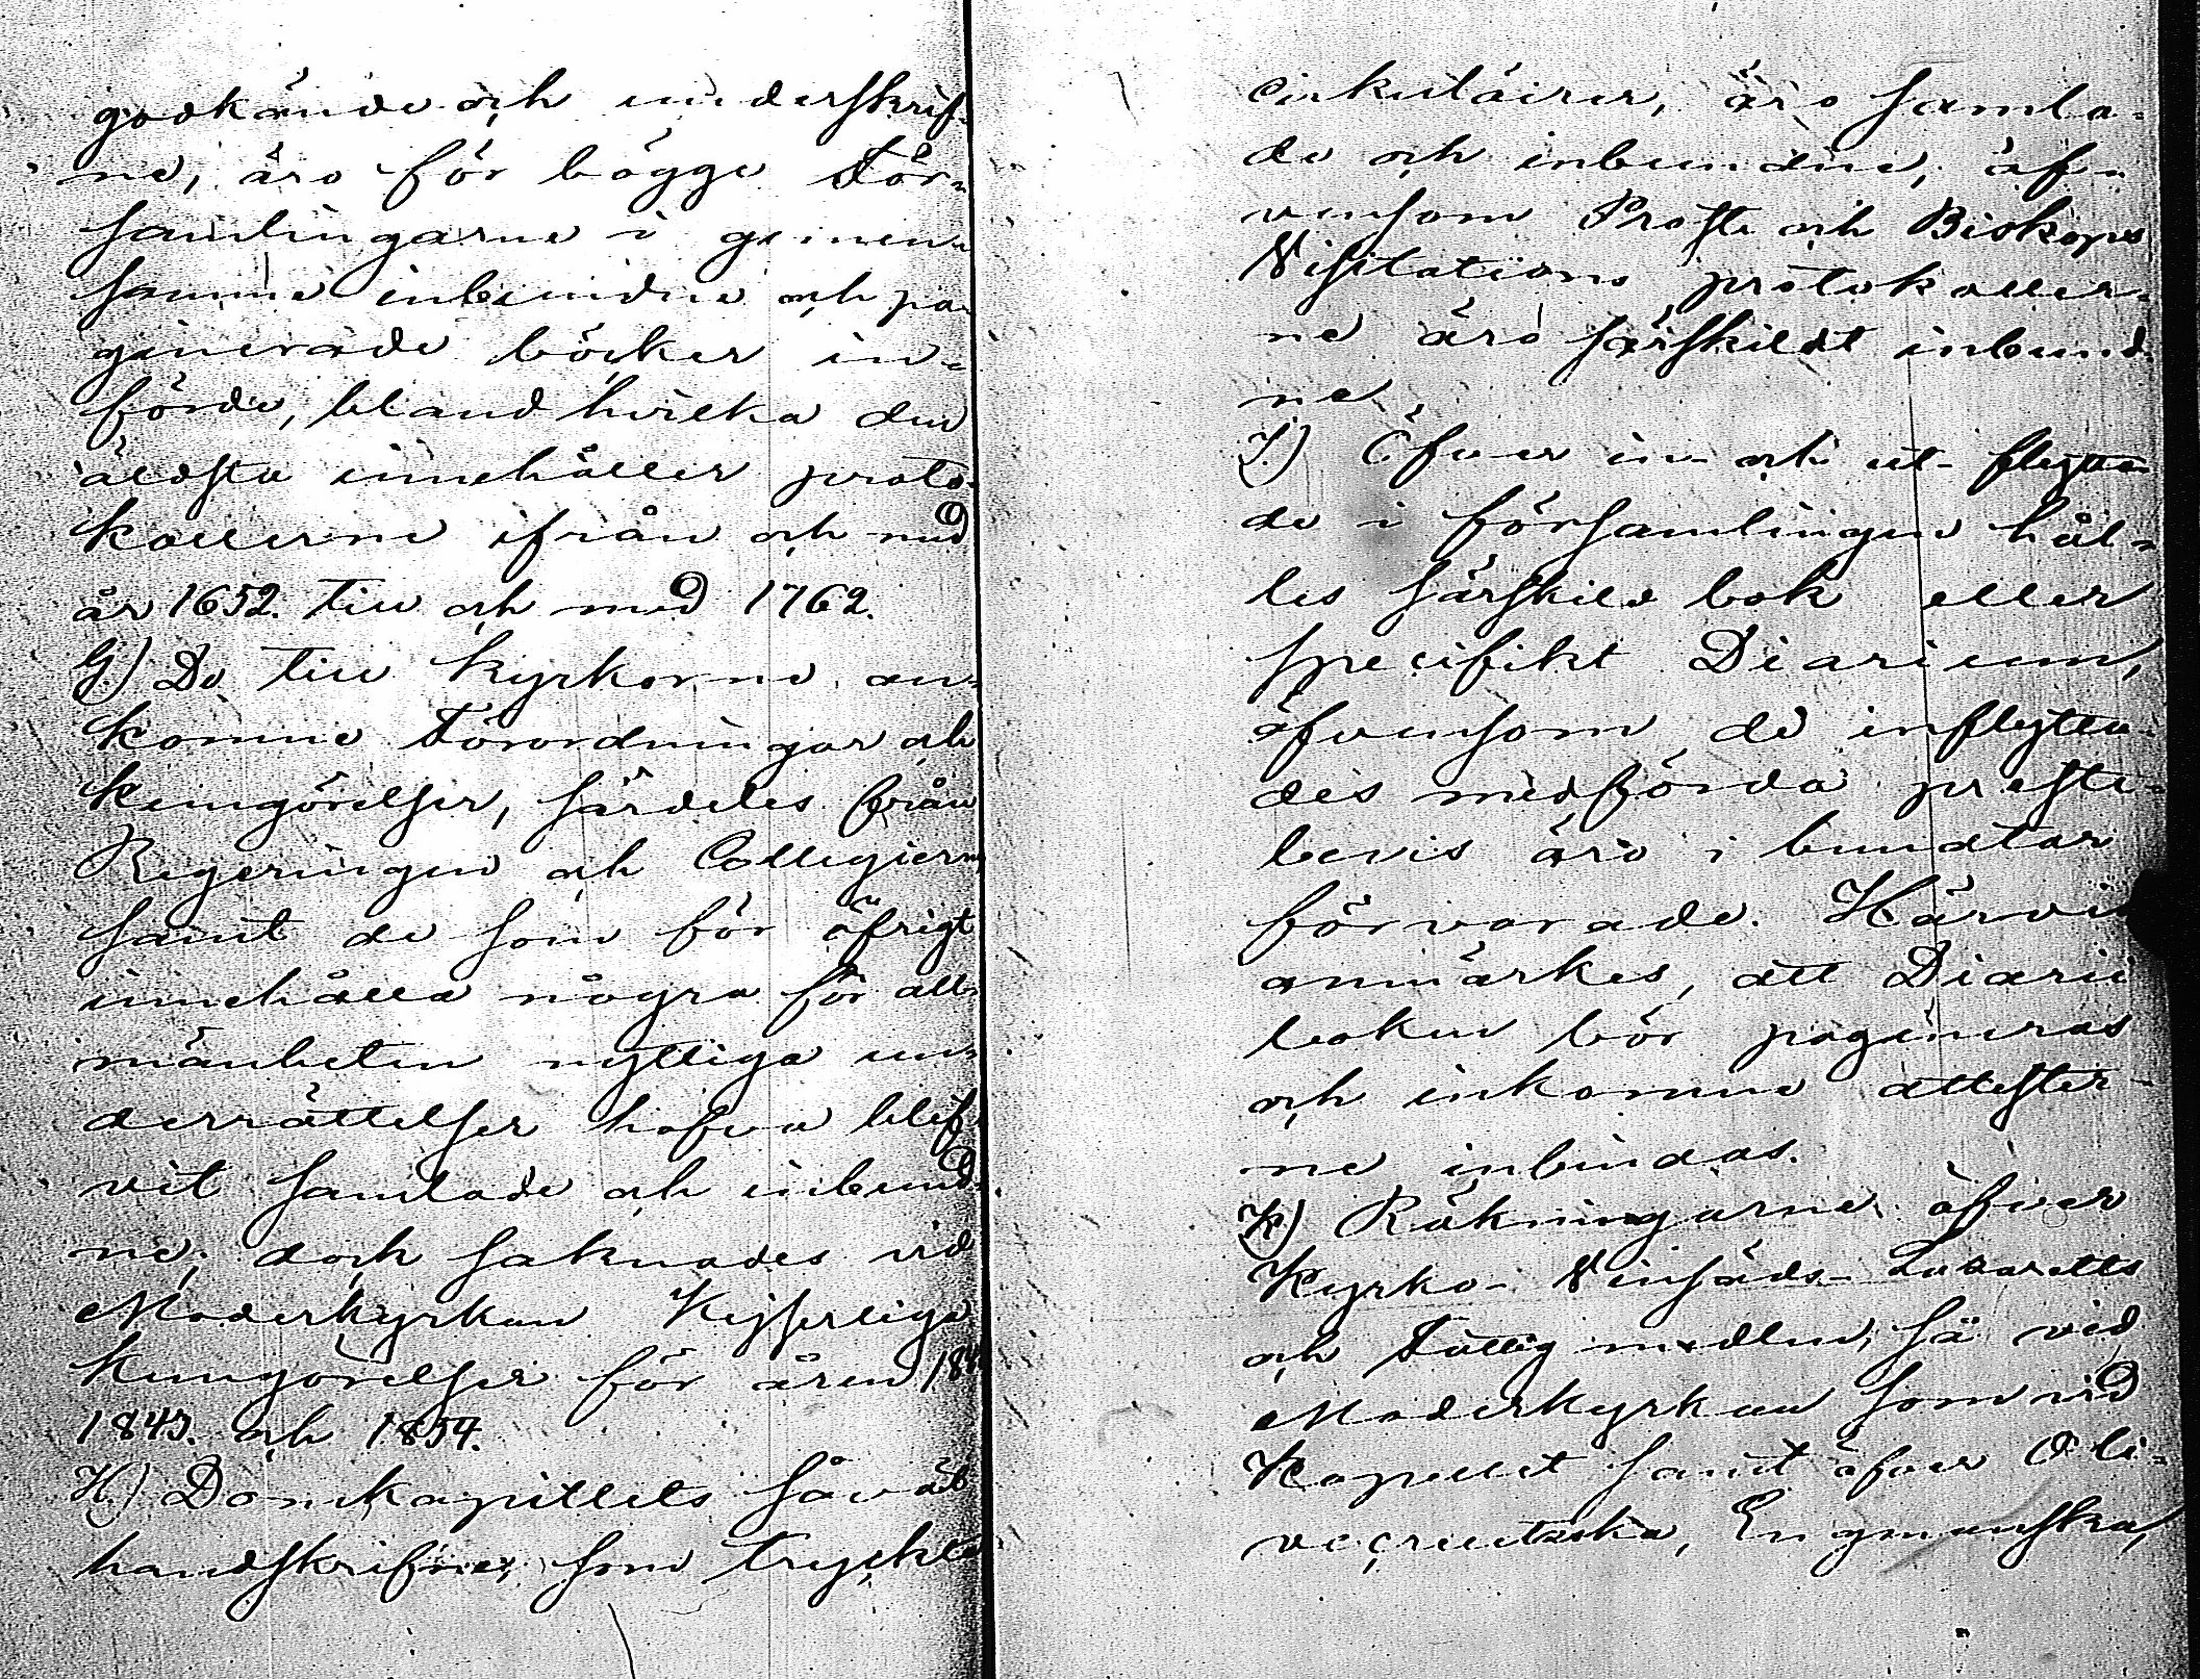 godkände och underskrif-
ne, äro för bägge För-
samlingarne i gemen-
samme inbundne och pa-
ginerade böcker in-
förde, bland hvilka den
äldsta innehåller proto-
kollerne ifrån och med
år 1652. till och med 1762.
G.) De till kyrkorne an-
komne Förordningar och
kungörelser, särdeles från
Regeringen och Collegierne
samt de som för öfrigt
innehålla några för all-
mänheten nyttiga un-
derrättelser hafva blif-
vit samlade och inbund-
ne; dock saknades vid
Moderkyrkan Kejserliga
Kungörelser för åren
1843. och 1854.
H.) Domkapitlets såväl
handskrifne, som tryckta
cirkulairer, äro samla-
de och inbundne, äf-
vensom Proste och Biskops
Visitations protokoller-
ne äro särskildt inbund-
ne.
J.) Öfver in- och ut- flyttan-
de i församlingen hål-
les särskild bok eller
specifikt Diarium,
äfvensom de inflytta-
des medförda preste-
bevis äro i bundtar
förvarade. Härvid
anmärkes, att Diarii
boken bör pagineras
och inkomne attester-
ne inbindas.
K.) Räkningarne öfver
Kyrko- Vinsäds- Lazaretts
och Fattig medlen, så vid
Moderkyrkan som vid
Kapellet samt öfver Oli-
vecreutzska, Engmanska,